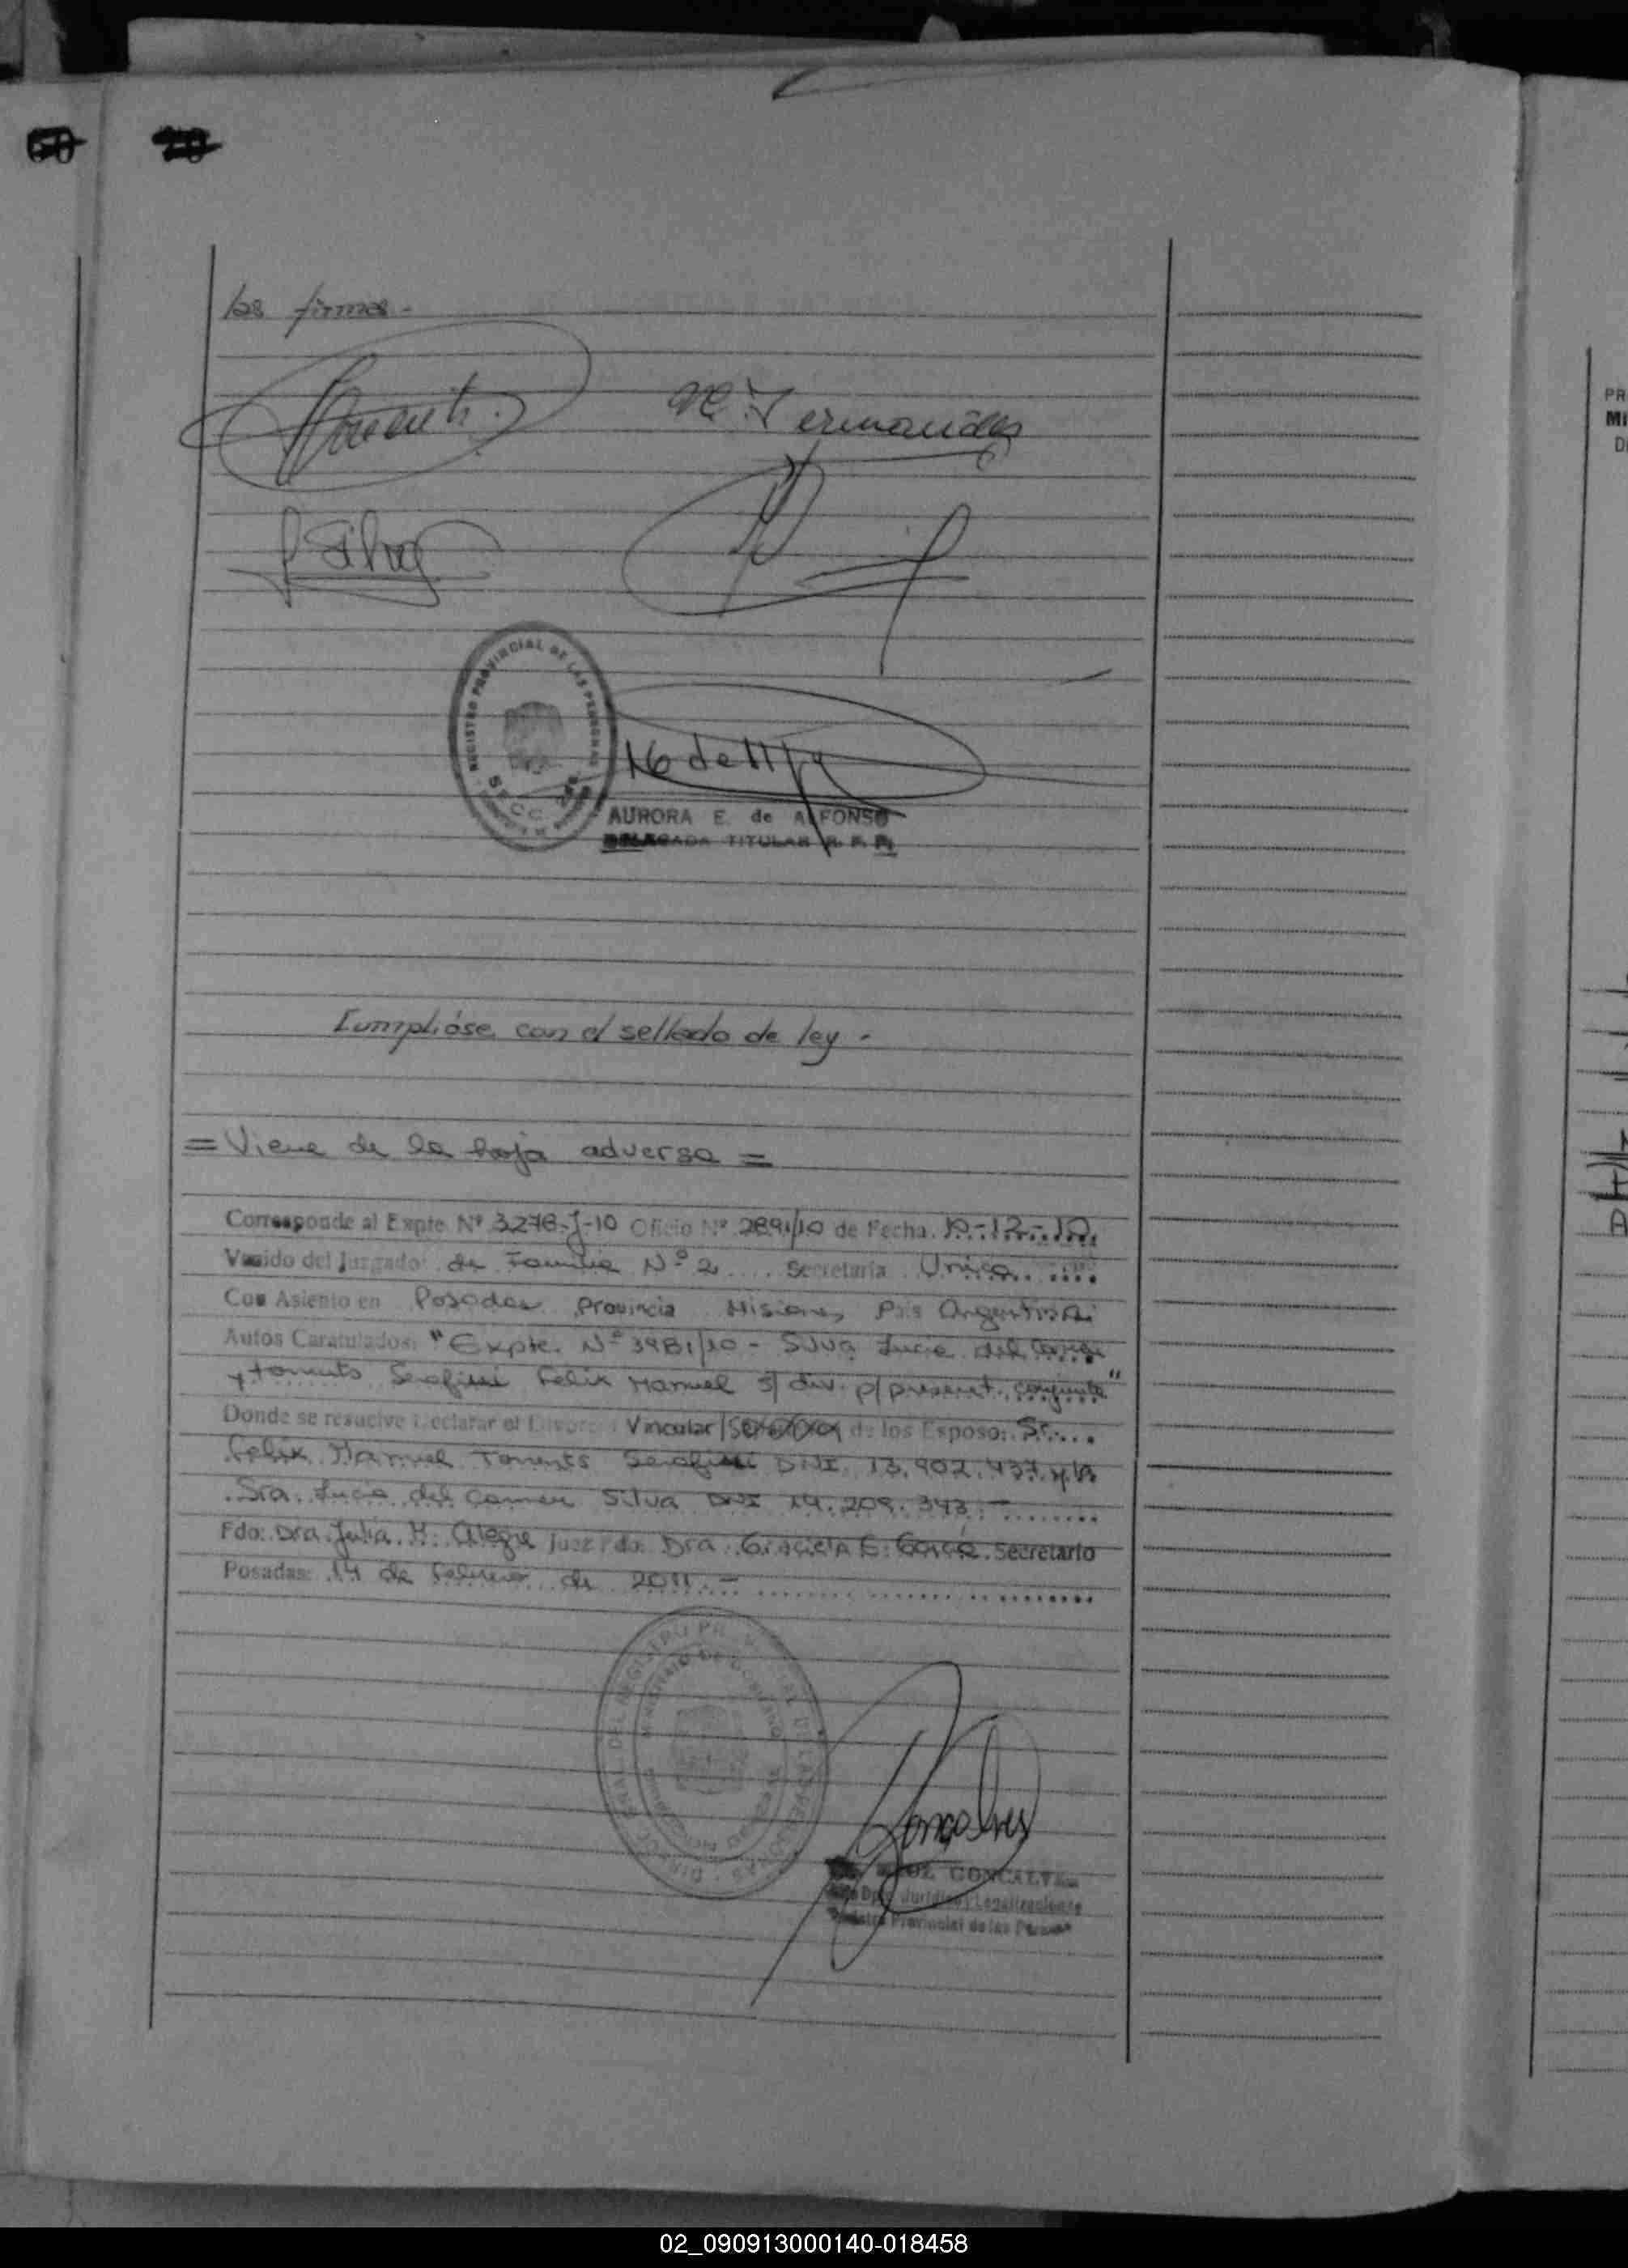 las firmas.-
M. Fernandez
REGISTRO PROVINCIAL DE LAS PERSONAS
SECC.
AURORA E. de ALFONSO
DELEGADA TITULAR R. P. P.
Cumplióse con el sellado de ley.-
= Viene de la hoja adversa =
Corresponde al Expte. Nº 3278-J-10 Oficio Nº 2891/10 de Fecha 10-12-10
Venido del Juzgado: de Familia Nº 2 Secretaría Unica
Con Asiento en Posadas Provincia Misiones País Argentina
Autos Caratulados: "Expte. Nº 3981/10 - Silva Lucia del Carmen
y Torrents Serafini Felix Manuel s/ div. p/ present. conjunta"
Donde se resuelve Declarar el Divorcio Vincular/ de los Esposo: Sr.
Felix Manuel Torrents Serafini DNI. 13.902.437 y la
Sra. Lucia del Carmen Silva DNI 14.209.343.-
Fdo: Dra. Julia H. Alegre Juez Fdo. Dra. Graciela E. Garcé. Secretario
Posadas: 14 de Febrero de 2011.-
DIRECC GENERAL DEL REGISTRO PROVINCIAL DE LAS PERSONAS
MINISTERIO DE GOBIERNO
Goncalves
GONCALVES
Dpto. Jurídico y Legalizaciones
Registro Provincial de las Personas
PR
MI
D
A
02_090913000140-018458